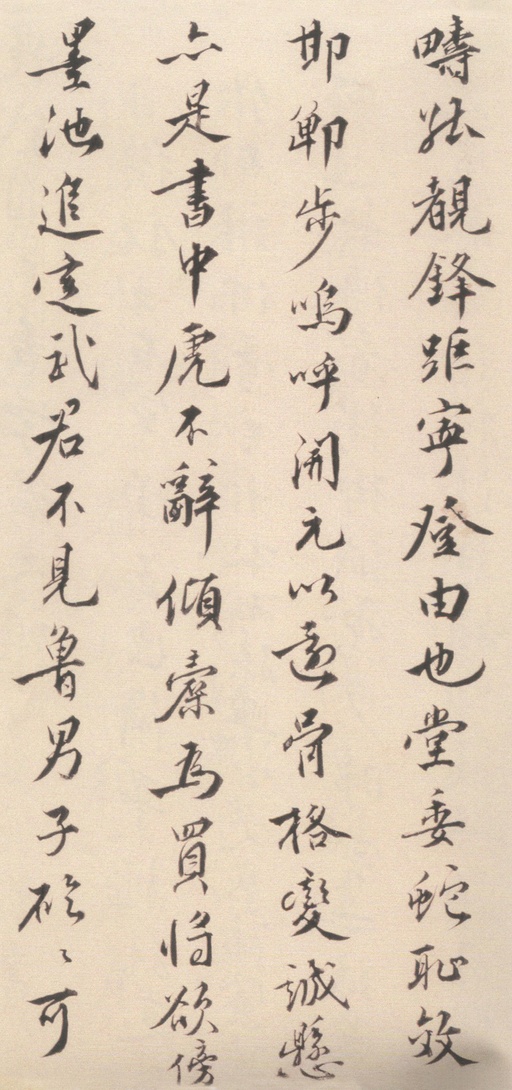 疇能覩鋒距寧登由也堂委蛇恥效
邯鄲步嗚呼開元以還骨格變誠懸
亦是書中虎不辭傾橐為買將欲傍
墨池追定武君不見魯男子硁〻可